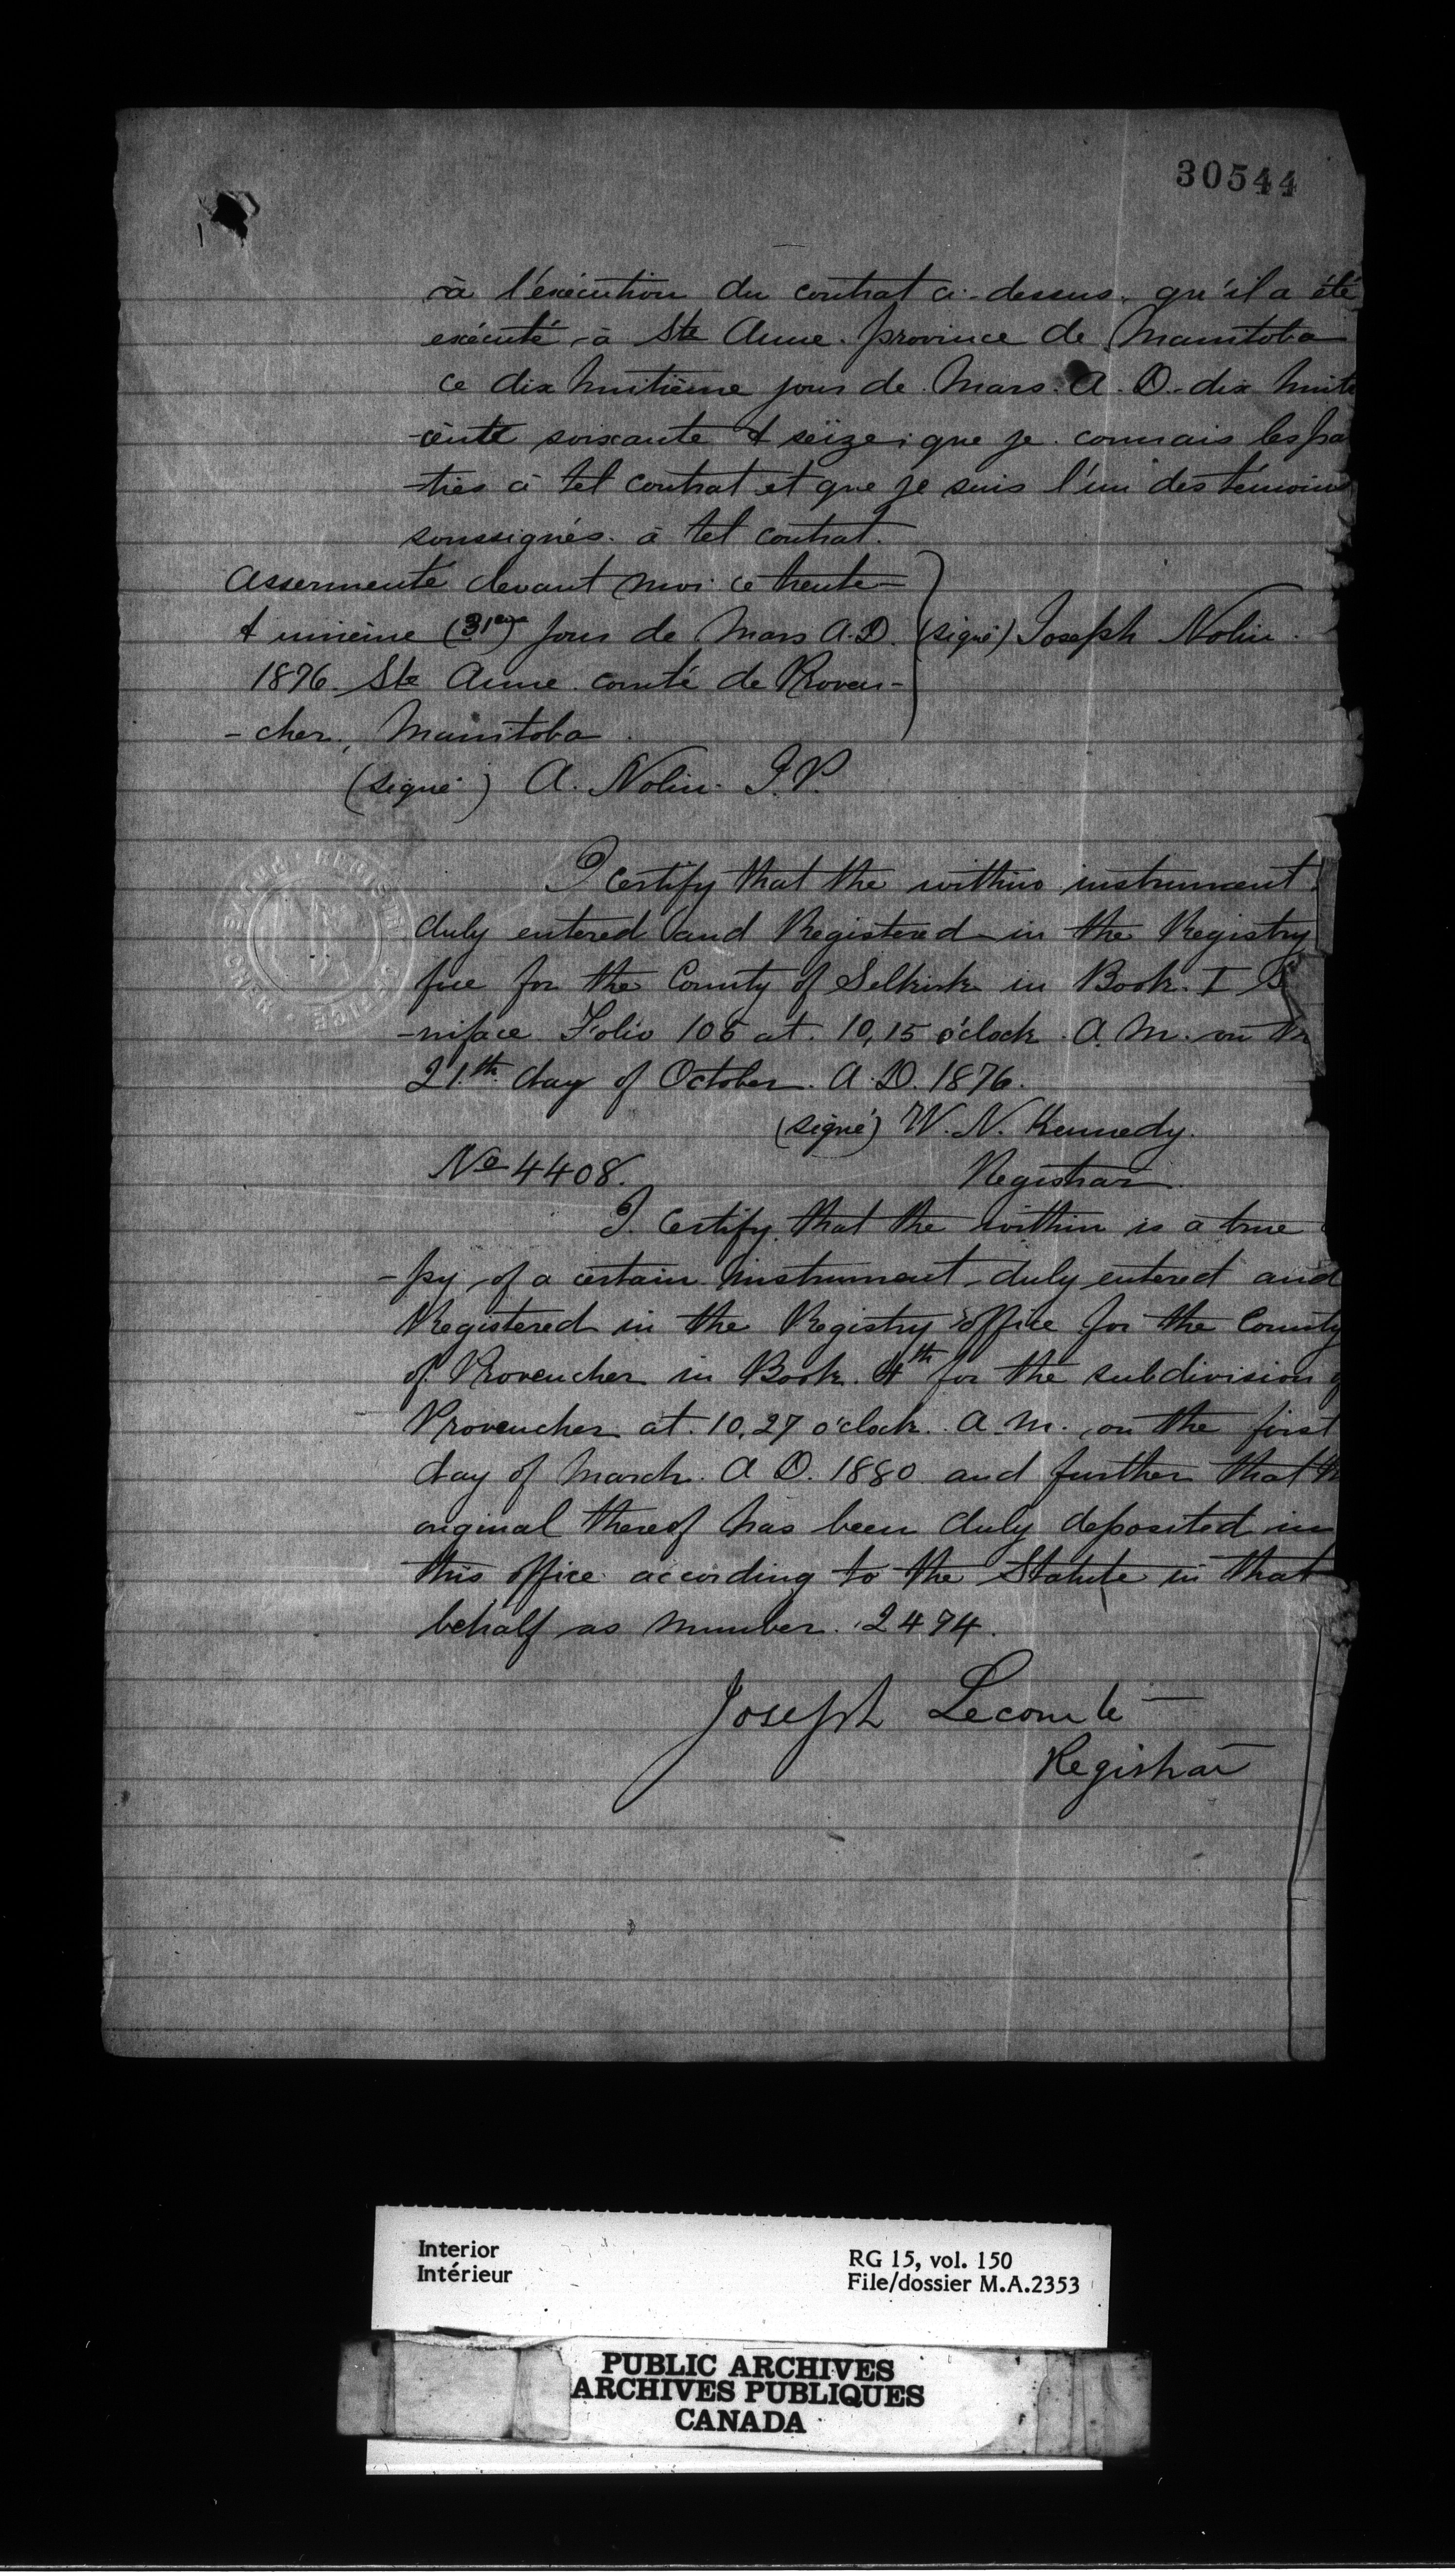 30544
à l'exécution du contrat ci-dessus. qu'il a été
exécuté à Ste Anne. province de Manitoba
ce dix huitième jour de Mars. A. D. dix huit
-cent soixante & seize; que je connais les par
-ties à tel contrat et que je suis l'un des témoins
soussignés. à tel contrat.
Assermenté devant moi ce trente-
& unième (31ème) jour de Mars A.D. (signé) Joseph Nolin.
1876. Ste Anne. comté de Proven-
- cher, Manitoba.
(signé) A. Nolin. J.P.
I certify that the within instrument
duly entered and Registered in the Registry
fice for the County of Selkirk in Book. I B
-niface Folio 106 at. 10,15 o'clock. A. M. on the
21.th day of October. A. D. 1876.
(signé) W. N. Kennedy.
No 4408. Registrar.
I. Certify that the within is a true
-py of a certain instrument duly entered and
Registered in the Registry office for the County
of Provencher in Book. 4th for the subdivision
Provencher at. 10,27 o'clock. A. M. on the first
day of March. A D. 1880 and further that
original thereof has been duly deposited in
this office according to the Statute in that
behalf as number. 2474.
Joseph Lecomte
Registrar
REGISTRY OFFICE PROVENCHER
Interior
Intérieur
RG 15, vol. 150
File/dossier M.A.2353
PUBLIC ARCHIVES
ARCHIVES PUBLIQUES
CANADA